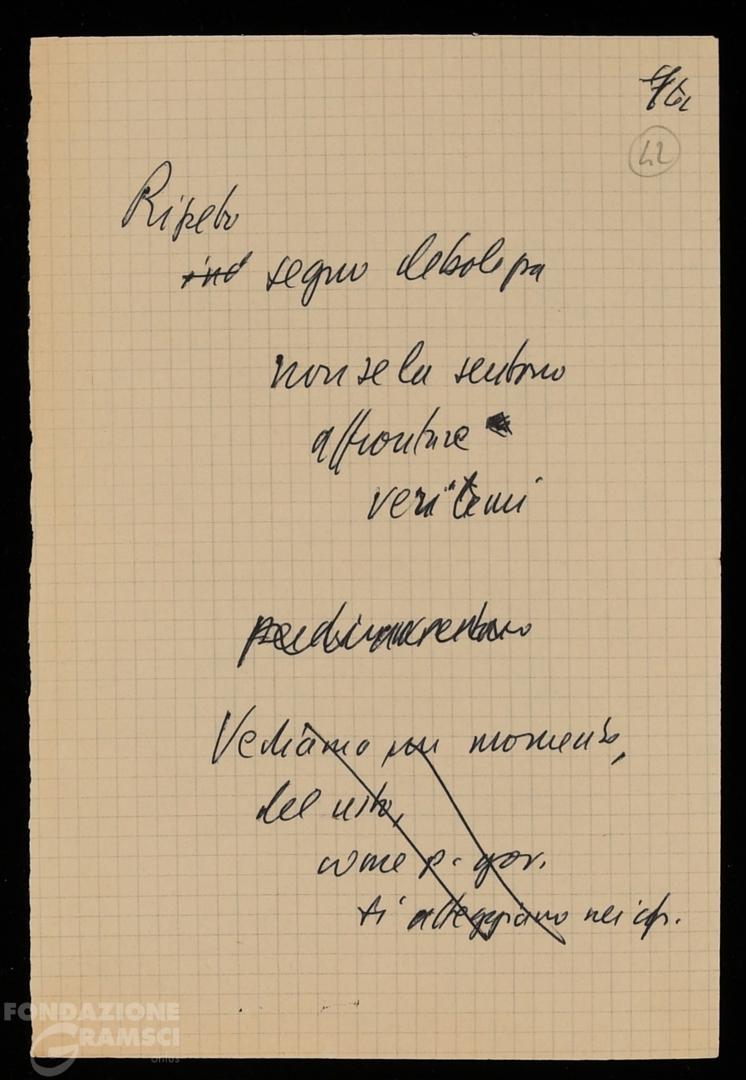 42
Ripeto
ind segno debolezza
non se la sentono
affrontare
veri temi
Vediamo un momento,
del resto,
come p. gov.
si atteggiano nei cfr.
FONDAZIONE
GRAMSCI
onlus